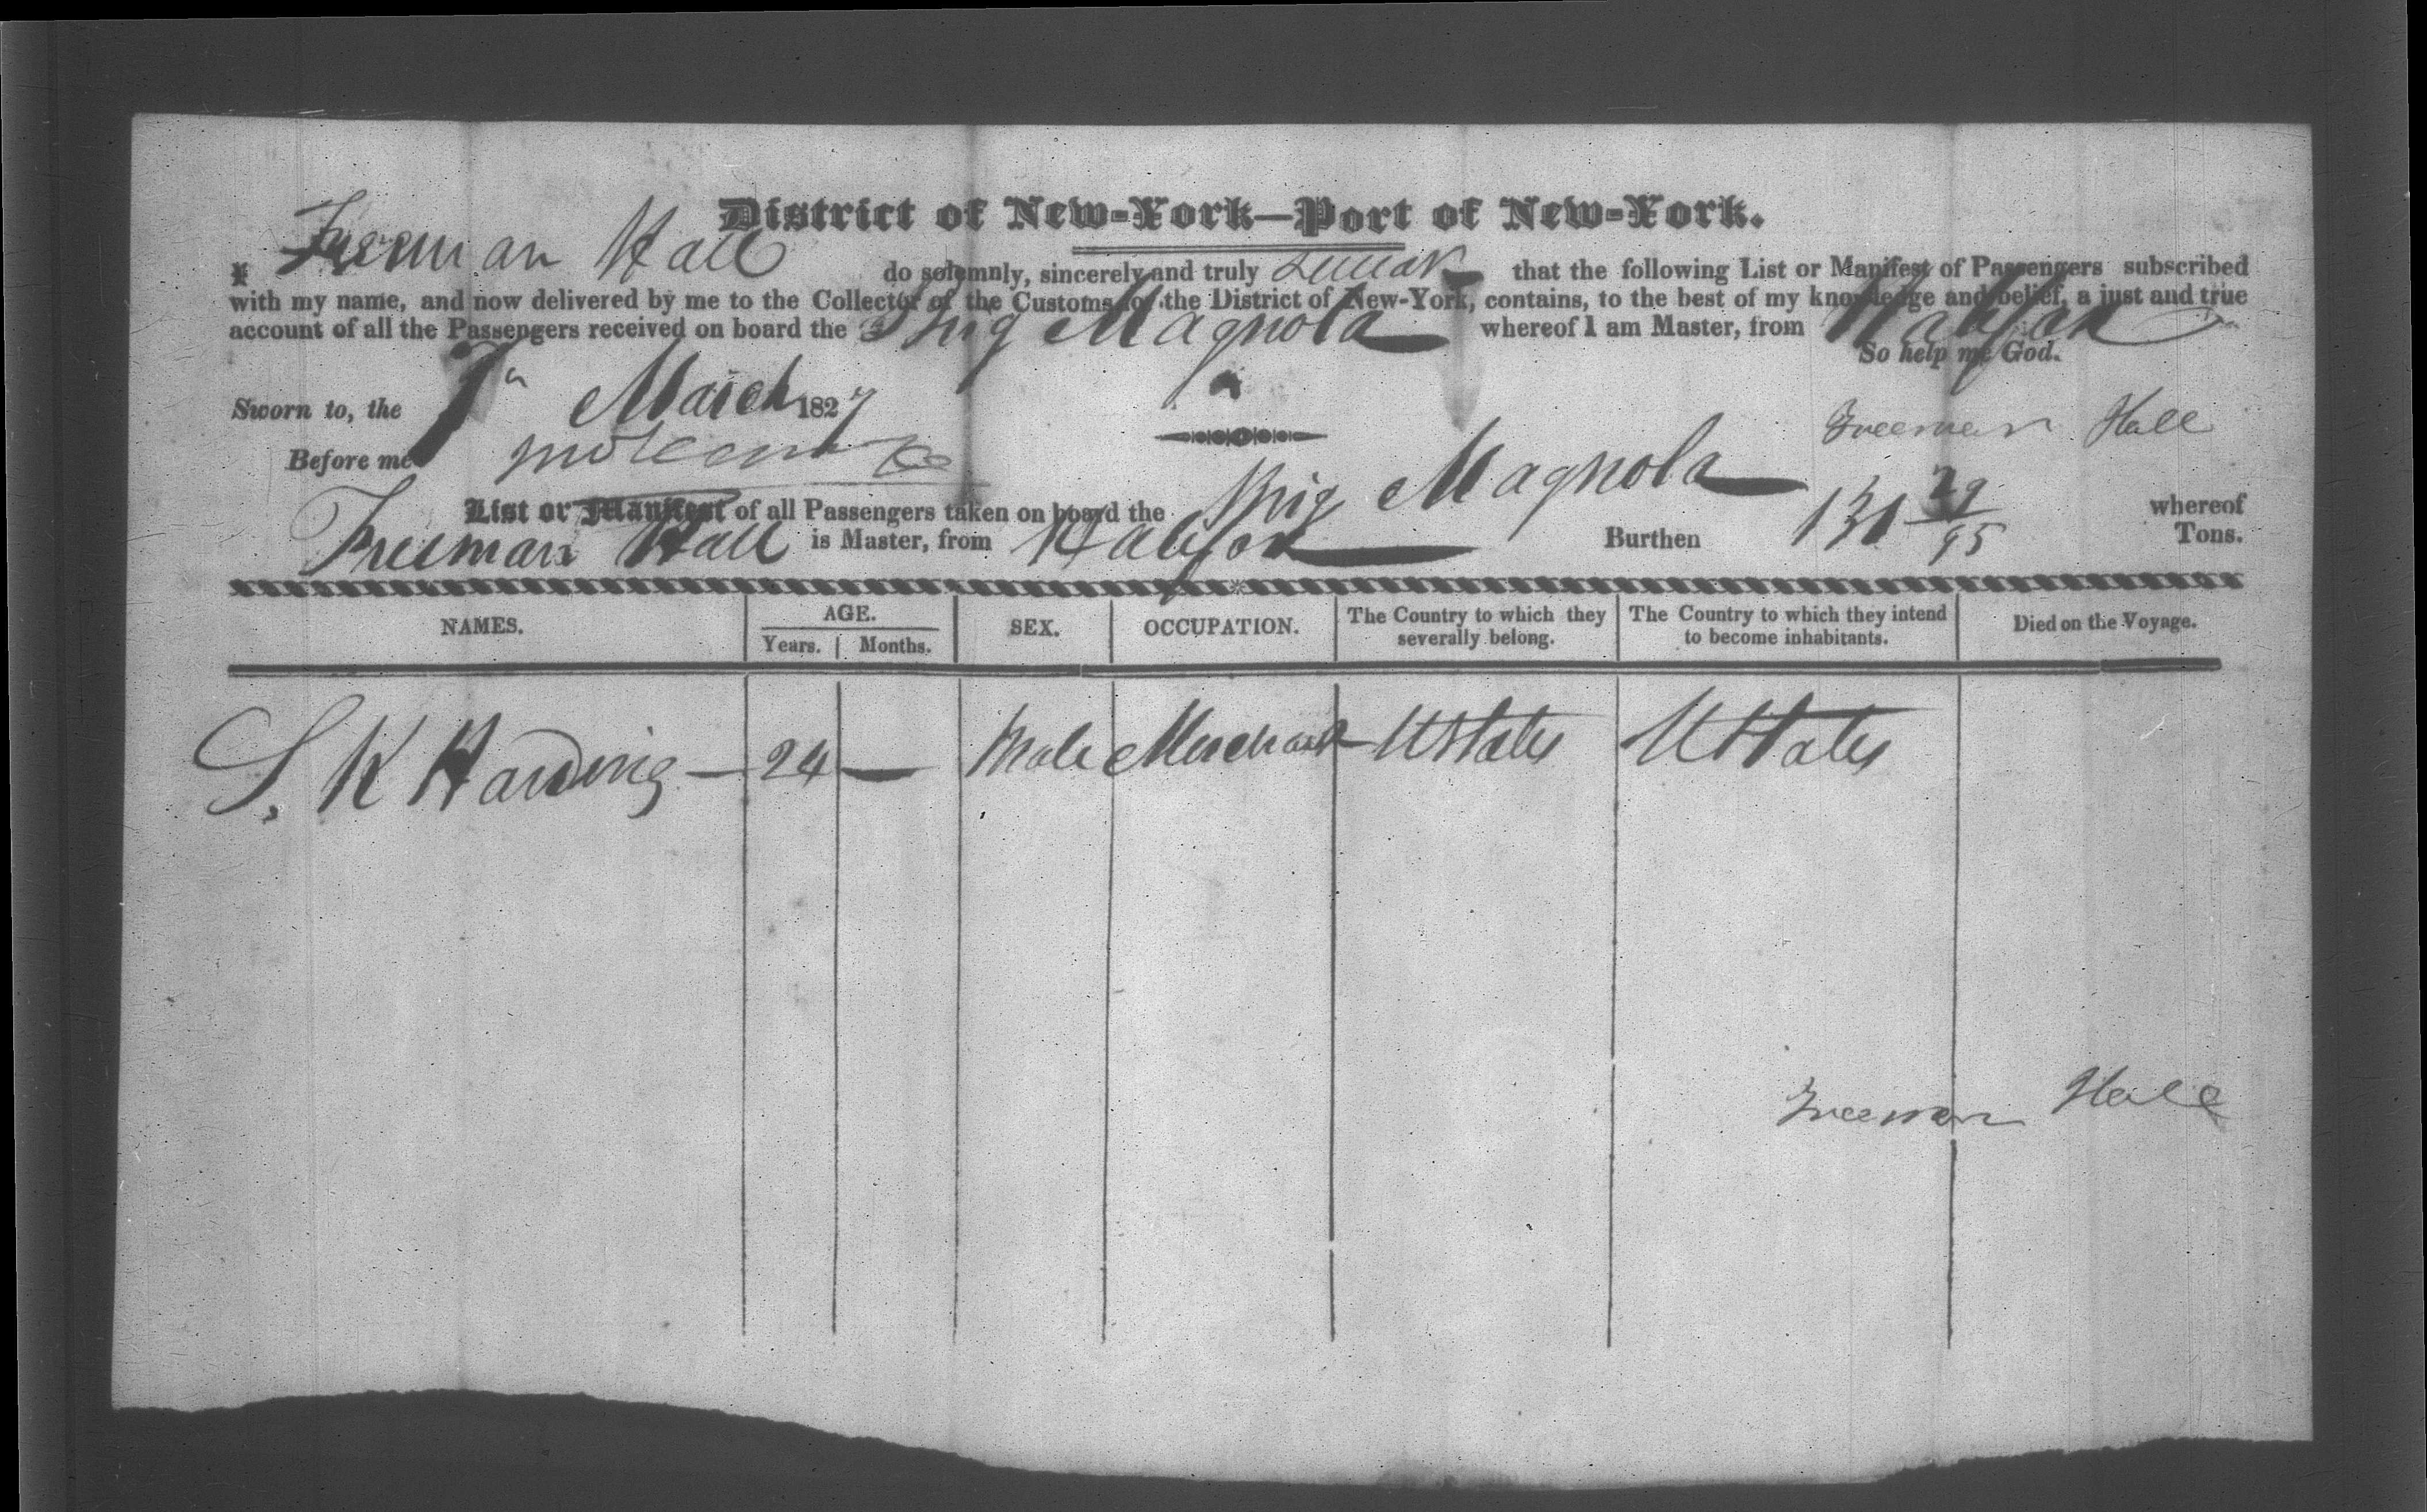 District of New-York—Port of New-York.
I Freeman Hall do solemnly, sincerely and truly swear that the following List or Manifest of Passengers subscribed
with my name, and now delivered by me to the Collector of the Customs for the District of New-York, contains, to the best of my knowledge and belief, a just and true
account of all the Passengers received on board the Brig Magnola whereof I am Master, from Halifax
So help me God.
Sworn to, the March 1827
Freeman Hall
Before me
List or Manifest of all Passengers taken on board the Brig Magnola whereof
Freeman Hall is Master, from Halifax Burthen 131 29/95 Tons.
NAMES. AGE. SEX. OCCUPATION. The Country to which they severally belong. The Country to which they intend to become inhabitants. Died on the Voyage.
Years. Months.
S. K Harding — 24 — Male Merchant UStates UStates
Freeman Hall